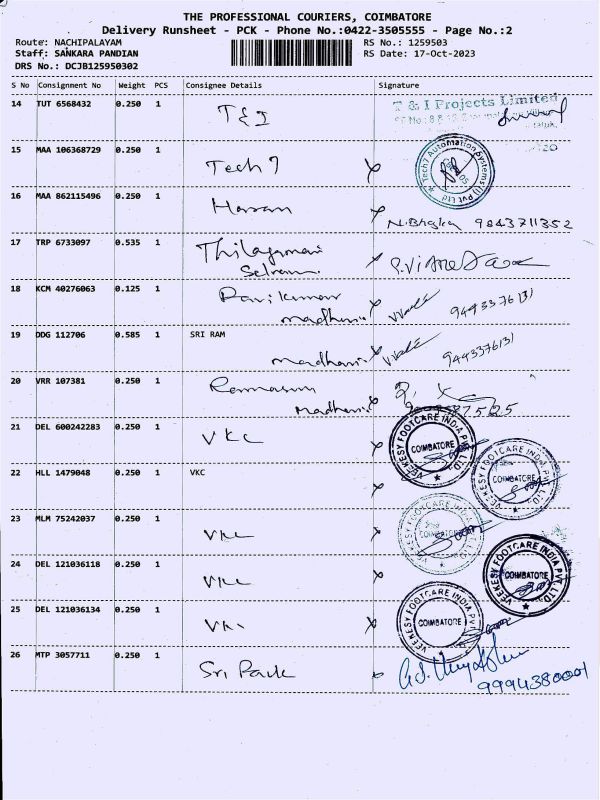 THE PROFESSIONAL COURIERS, COIMBATORE
Delivery Runsheet - PCK - Phone No.:0422-3505555 - Page No.:2
Route: NACHIPALAYAM RS No.: 1259503
Staff: SANKARA PANDIAN RS Date: 17-Oct-2023
DRS No.: DCJB125950302
S No Consignment No Weight PCS Consignee Details Signature
14 TUT 6568432 0.250 1 T & I T & I Projects Limited
15 MAA 106368729 0.250 1 Tech 7 Tech7 Automation Systems (I) Pvt Ltd
16 MAA 862115496 0.250 1 Hasan 9843711352
17 TRP 6733097 0.535 1 Thilagamani
Selvam
18 KCM 40276063 0.125 1 Ravikumar
9443376131
19 DDG 112706 0.585 1 SRI RAM
9443376131
20 VRR 107381 0.250 1
21 DEL 600242283 0.250 1 VKC VEEKESY FOOTCARE INDIA PVT LTD COIMBATORE
22 HLL 1479048 0.250 1 VKC VEEKESY FOOTCARE INDIA PVT LTD COIMBATORE
23 MLM 75242037 0.250 1 VKC VEEKESY FOOTCARE INDIA PVT LTD COIMBATORE
24 DEL 121036118 0.250 1 VKC VEEKESY FOOTCARE INDIA PVT. LTD COIMBATORE
25 DEL 121036134 0.250 1 VKC VEEKESY FOOTCARE INDIA PVT LTD COIMBATORE
26 MTP 3057711 0.250 1 Sri Pack
9994380001